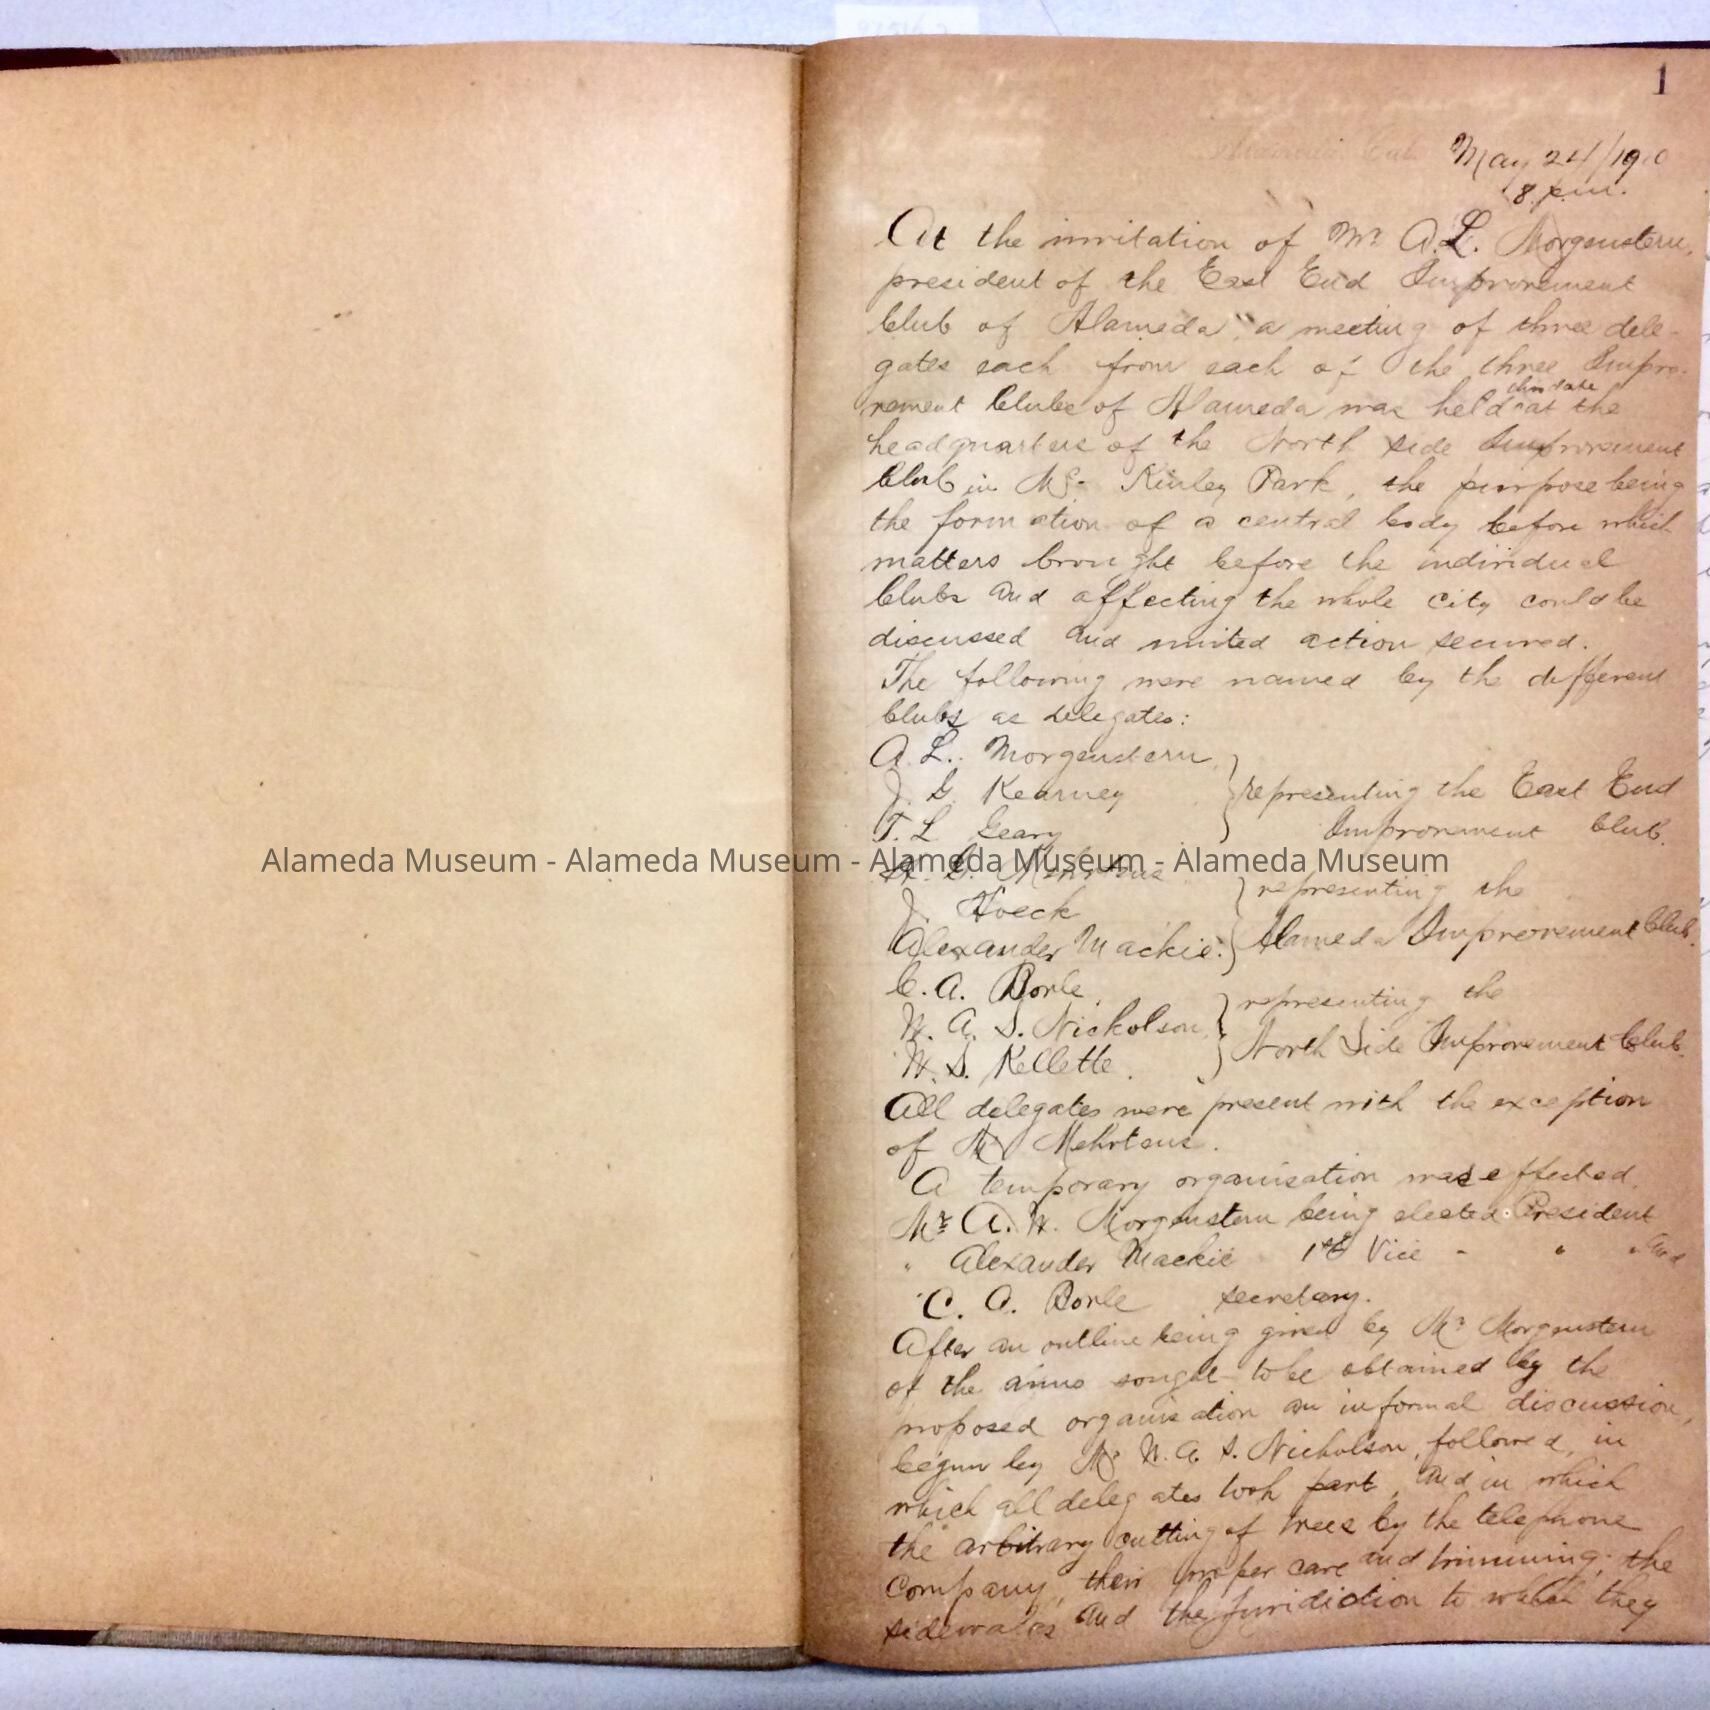 1
May 24/1910
8 p.m.
At the invitation of Mr. A.L. Morgenstern,
president of the East End Improvement
Club of Alameda, a meeting of three dele-
gates each from each of the three Impro-
vement Clubs of Alameda was held this date at the
headquarters of the North side Improvement
Club in Mc-Kinley Park, the purpose being
the formation of a central body before which
matters brought before the individual
Clubs and affecting the whole city could be
discussed and united action secured.
The following were named by the different
Clubs as delegates:
A. L. Morgenstern
J. G. Kearney representing the East End
T. L. Geary Improvement Club.
Alameda Museum - Alameda Museum - Alameda Museum - Alameda Museum
Mehrtens representing the
J. Hoeck
Alexander Mackie. Alameda Improvement Club.
C. A. Borle representing the
W. A. S. Nicholson
W. S. Kellette. North Side Improvement Club.
All delegates were present with the exception
of Mr Mehrtens.
A temporary organisation was effected.
Mr. A. W. Morgenstern being elected President
" Alexander Mackie 1st Vice - " " and
C. A. Borle secretary.
After an outline being given by Mr Morgenstern
of the aims sought to be obtained by the
proposed organisation an informal discussion,
begun by Mr W. A. S. Nicholson, followed, in
which all delegates took part, and in which
the arbitrary cutting of trees by the telephone
company, their proper care and trimming; the
sidewalks and the juridiction to which they